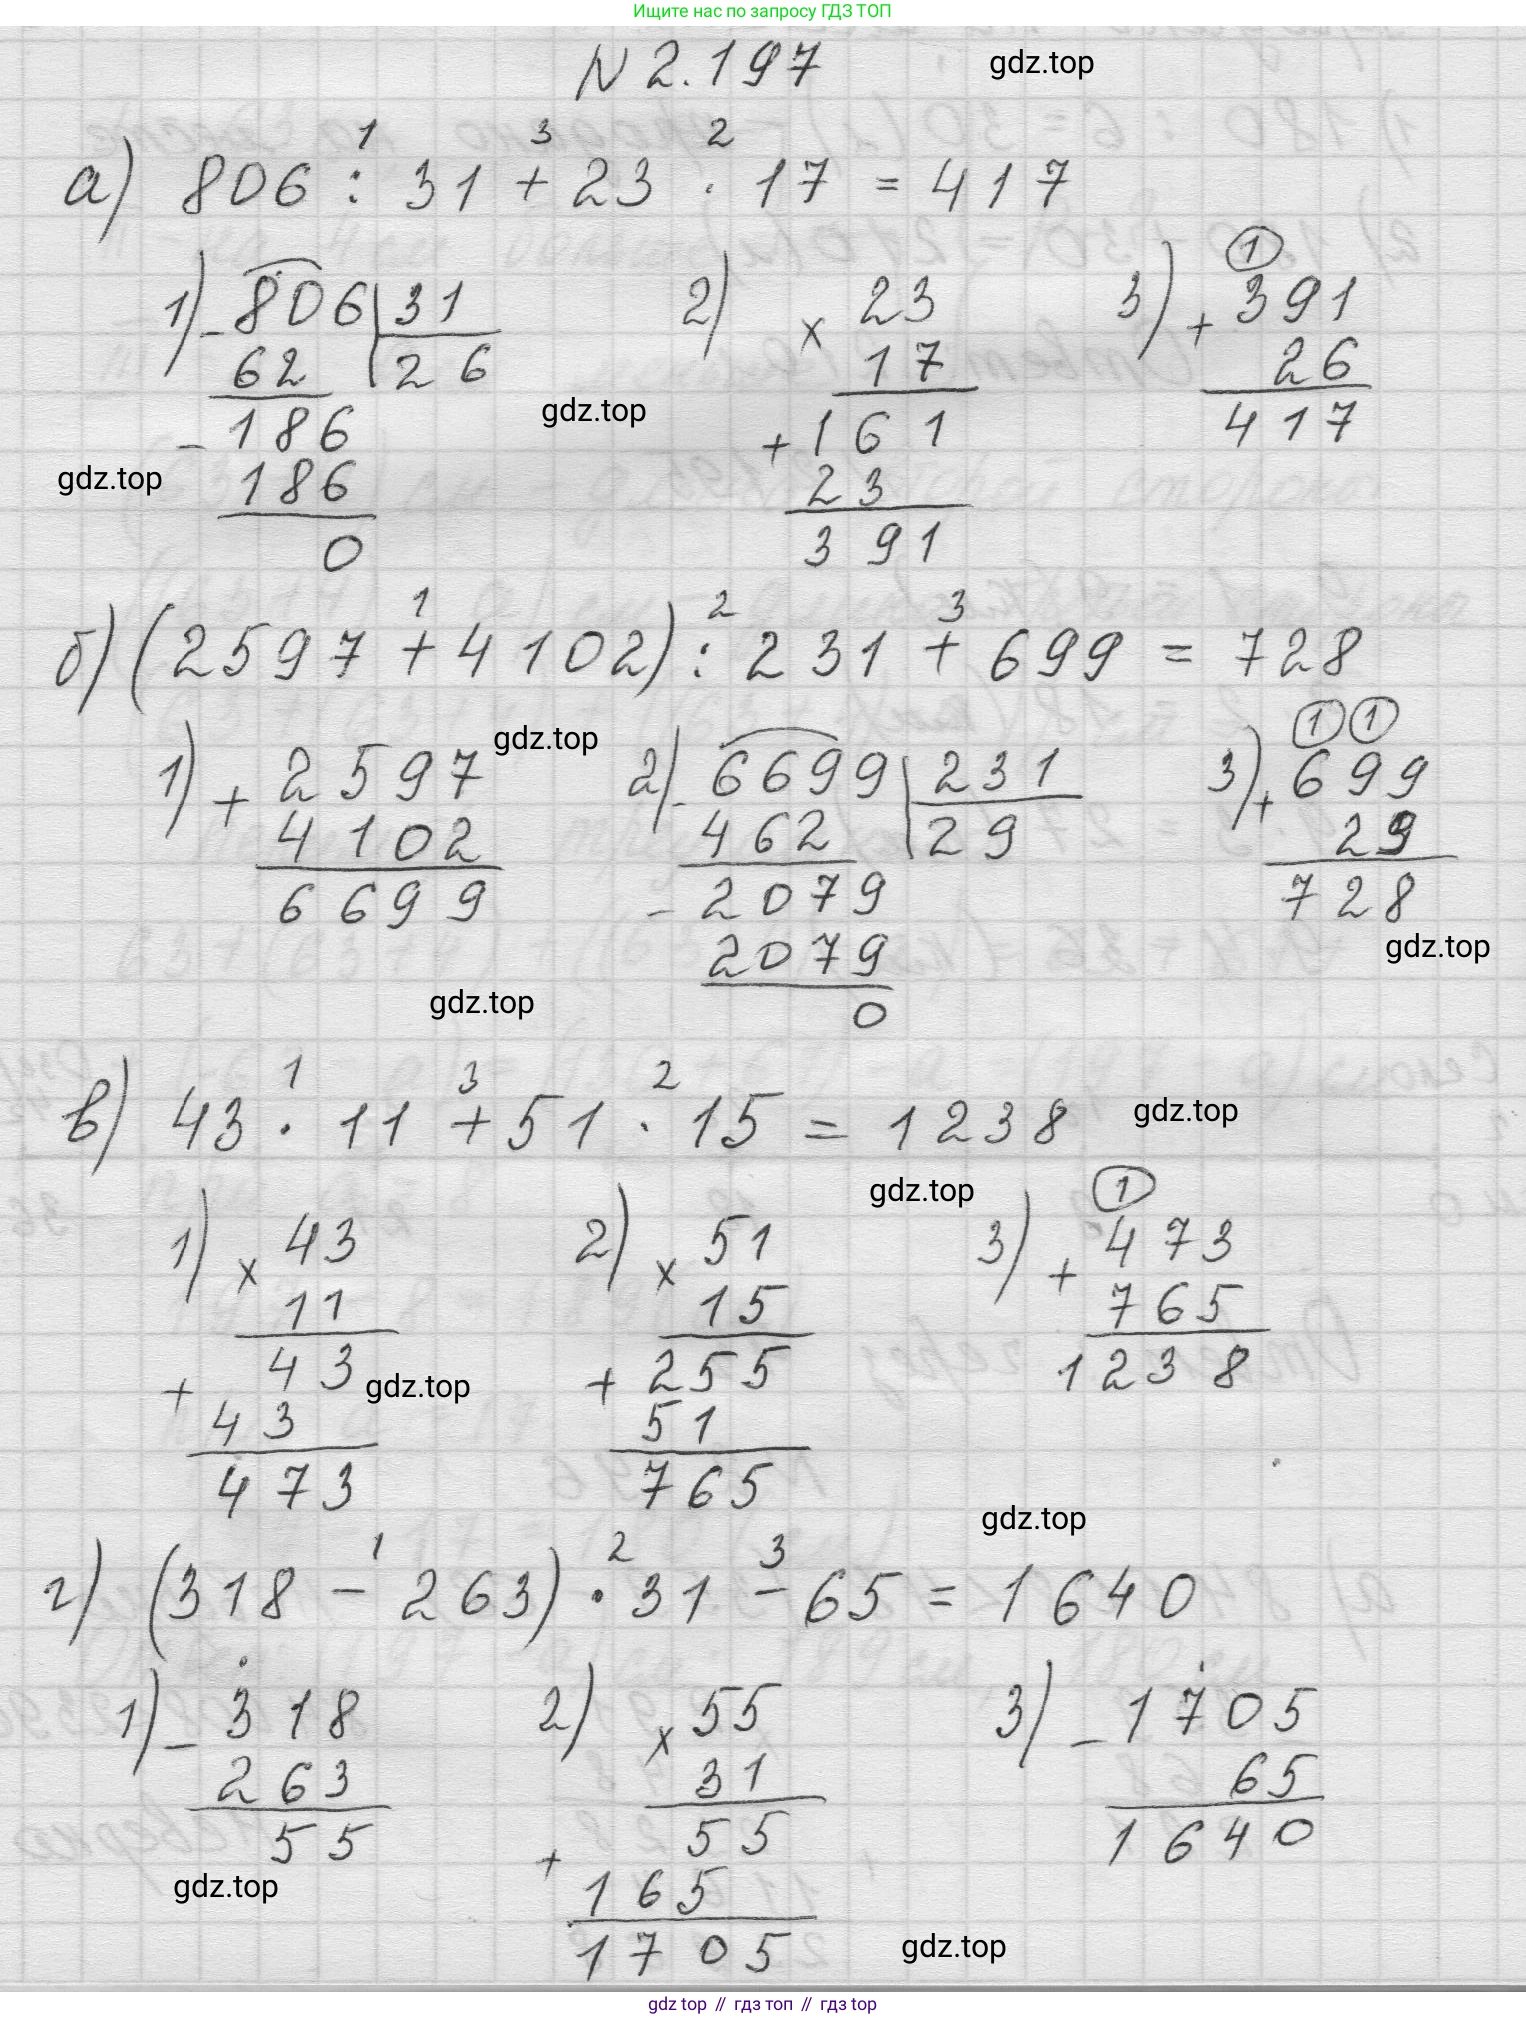 Ищите нас по запросу ГДЗ ТОП
N 2.197 gdz.top
1 3 2
а) 806 : 31 + 23 · 17 = 417
1) - 806 | 31
62 | 26
- 186
186
0
2) × 23
17
+ 161
23
391
3) 1
+ 391
26
417
gdz.top
gdz.top
1 2 3
б) (2597 + 4102) : 231 + 699 = 728
1) + 2597
4102
6699
gdz.top
2) - 6699 | 231
462 | 29
- 2079
2079
0
3) 1 1
+ 699
29
728
gdz.top
gdz.top
1 3 2
в) 43 · 11 + 51 · 15 = 1238
gdz.top
1) × 43
11
+ 43
43
473
gdz.top
2) × 51
15
+ 255
51
765
gdz.top
3) 1
+ 473
765
1238
gdz.top
1 2 3
г) (318 - 263) · 31 - 65 = 1640
1) - 318
263
55
gdz.top
2) × 55
31
+ 55
165
1705
3) - 1705
65
1640
gdz.top
gdz top // гдз топ // гдз top